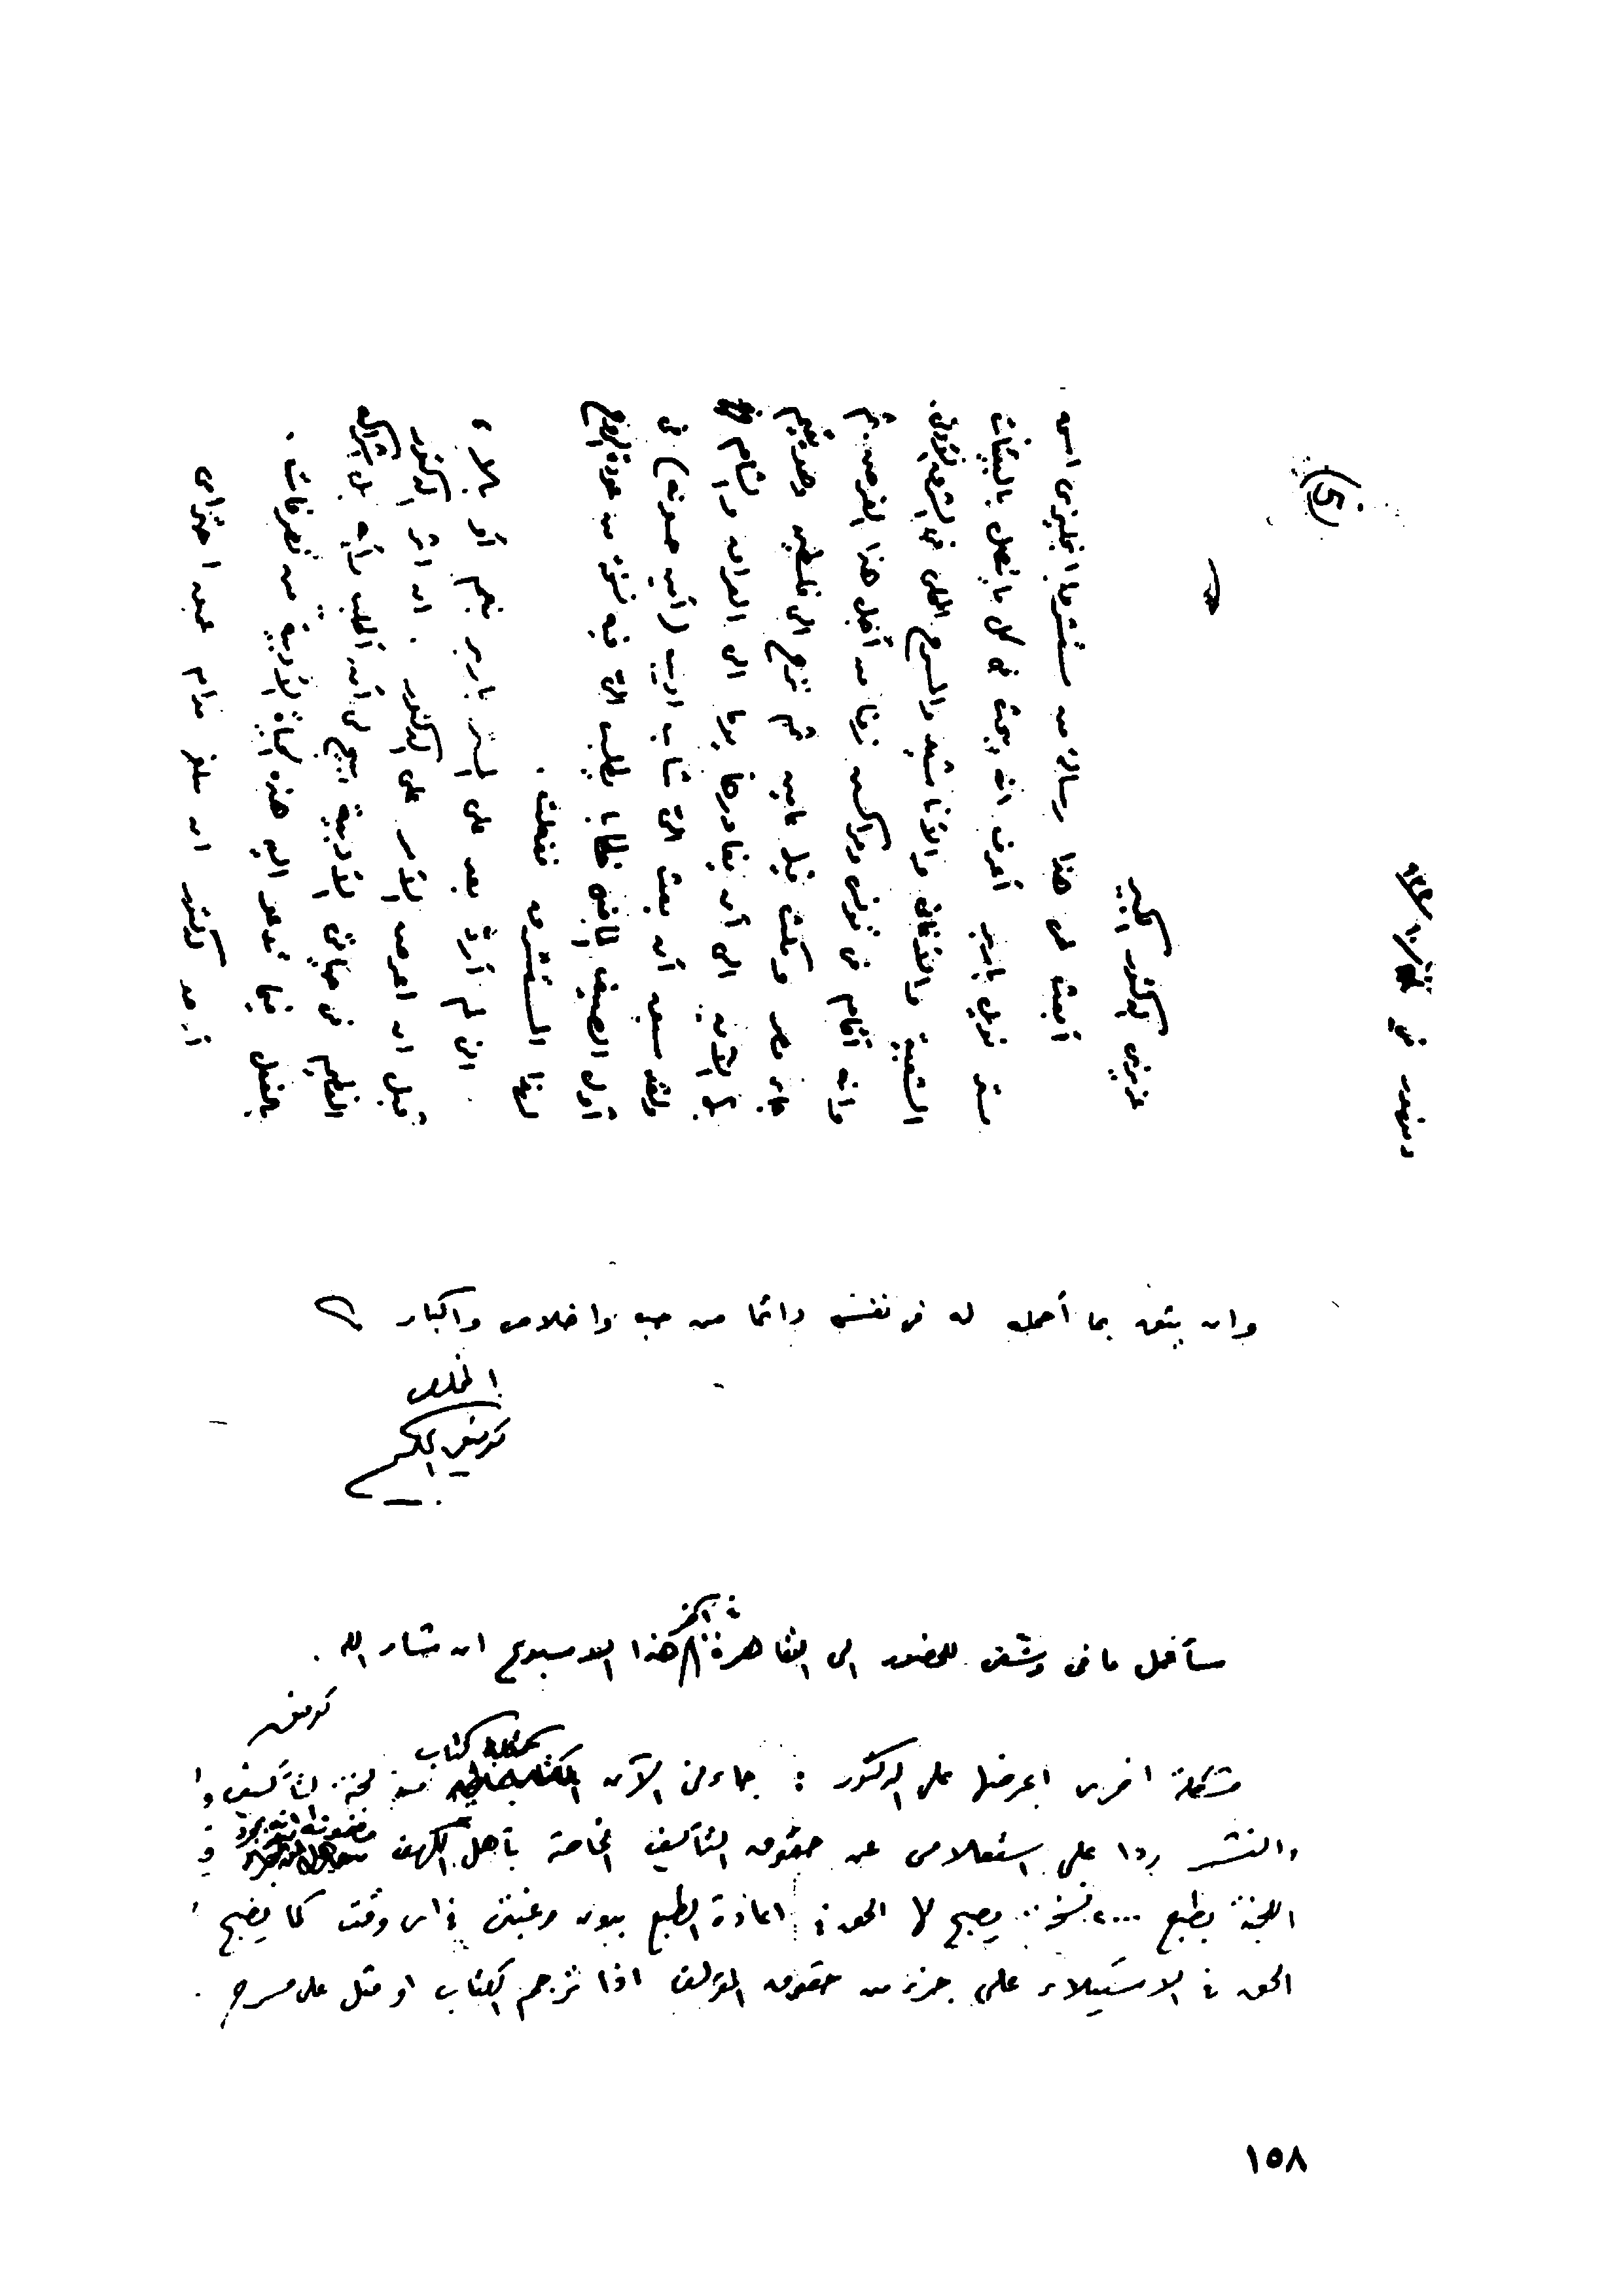 (٥)
دمنهور في
عزيزي الدكتور الكبير
أبعث في هذا رسالة من مستشرق انجليزي اسمه
مستر نويل باربر أعرف انه يبحث في كل ما يتصل بالبيئات
الشعبية والأغاني والأناشيد والمسرح المحلي في الشرق
وانه أقام في تونس ومراكش زمنا من أجل هذا الغرض ثم
جاء مصر ومكث قبل عامين ثم نزح الى فلسطين
الى أن يغادرها يوما الى العراق والشام
ولقد سبق أن بعث الى شاب اديب (أمين حسونه) في
أول الصيف الماضي خطابا يطلب الى فيه نسخة من عودة الروح
لهذا المستشرق ففعلت .
انى لم أرد بعد على المستر باربر بنعم أو بلا
قبل ان اعرض الأمر على الدكتور . ان اثر الدكتور
العظيم في حياتي الأدبية يبيح لي أن أطلب رأيه بل اشراكه
بالفعل فيما تدعو اليه هذه الحياة الأدبية من تصرفات .
أرجو الدكتور ان يبلغ مدام عميق احترامى
وان يثق بما أحمله له في نفسى دائما من حب واخلاص واكبار
المخلص
توفيق الحكيم
سأعمل ما في وسعى للحضور الى القاهرة في آخر هذا الاسبوع ان شاء الله .
توفيق
مشكلة اخرى اعرضها على الدكتور : جاءنى الآن كتاب من لجنة التأليف
والنشر ردا على استعلامى عن حقوق التأليف الخاصة بأهل الكهف مضمونه انه بمجرد
اللجنة بطبع ٢٠٠٠ نسخة يصبح لها الحق في اعادة الطبع بدون رغبتى في اى وقت كما يصبح
الحق في الاستيلاء على جزء من حقوق المؤلف اذا ترجم الكتاب او مثل على مسرح .
١٥٨